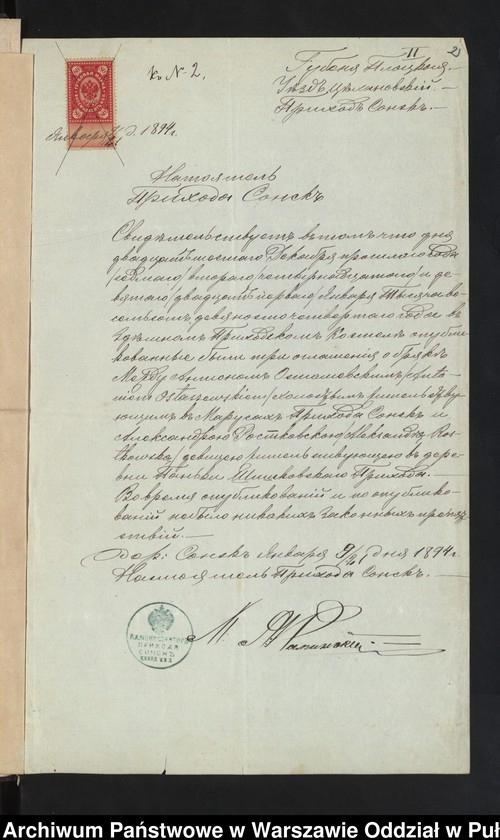 II 2
к № 2.
Губернія Плоцкая.
Уѣздъ Цѣхановскій.
Приходъ Сонскъ.
Января 9/21 д. 1894 г.
Настоятель
Прихода Сонскъ
Свидѣтельствуетъ въ томъ что дня
двадцать шестого Декабря прошлого года
/седмаго/ второго /четырнадцатаго/ и де-
вятаго /двадцать перваго/ Января Тысяча во-
семьсотъ девяносто четвертаго года въ
здѣшномъ Приходскомъ Костелѣ опубли-
кованные были три оглашенія о бракѣ
Между Антономъ Осташевскимъ /Anto-
nim Ostaszewskim/ холостымъ жительству-
ющимъ въ Марусахъ Прихода Сонскъ и
Александрою Ростковскою /Aleksandrą Ros-
tkowską/ девицею жительствующею въ дерев-
ни Шишковскаго Прихода.
Во время опубликованій и по опублико-
ваній не было никакихъ законныхъ препят-
ствій.
Сонскъ Января 9/21 дня 1894 г.
Настоятель Прихода Сонскъ.
ПРИХОДА
СОНСКЪ
Archiwum Państwowe w Warszawie Oddział w Puł